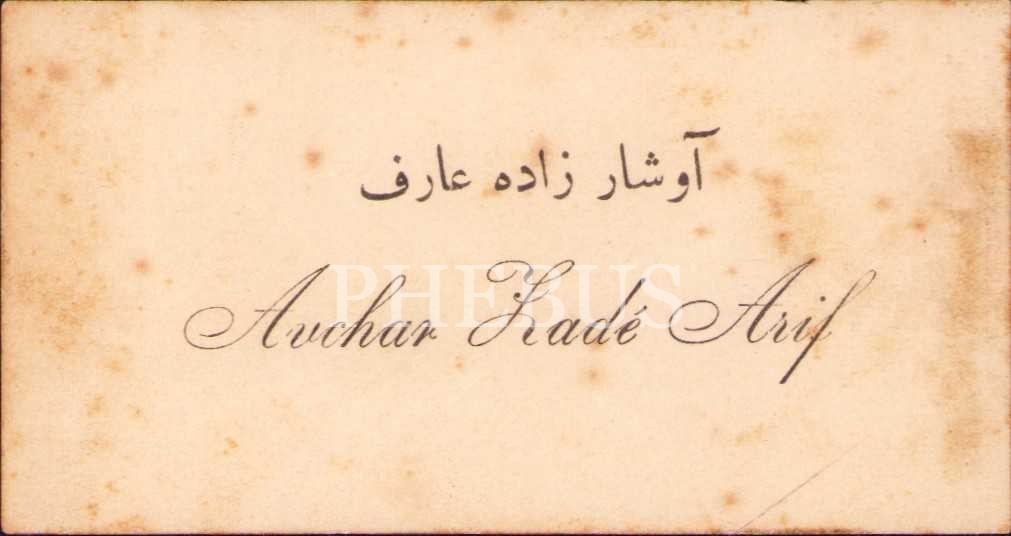 آوشار زاده عارف
Avchar Zadé Arif
PHEBUS